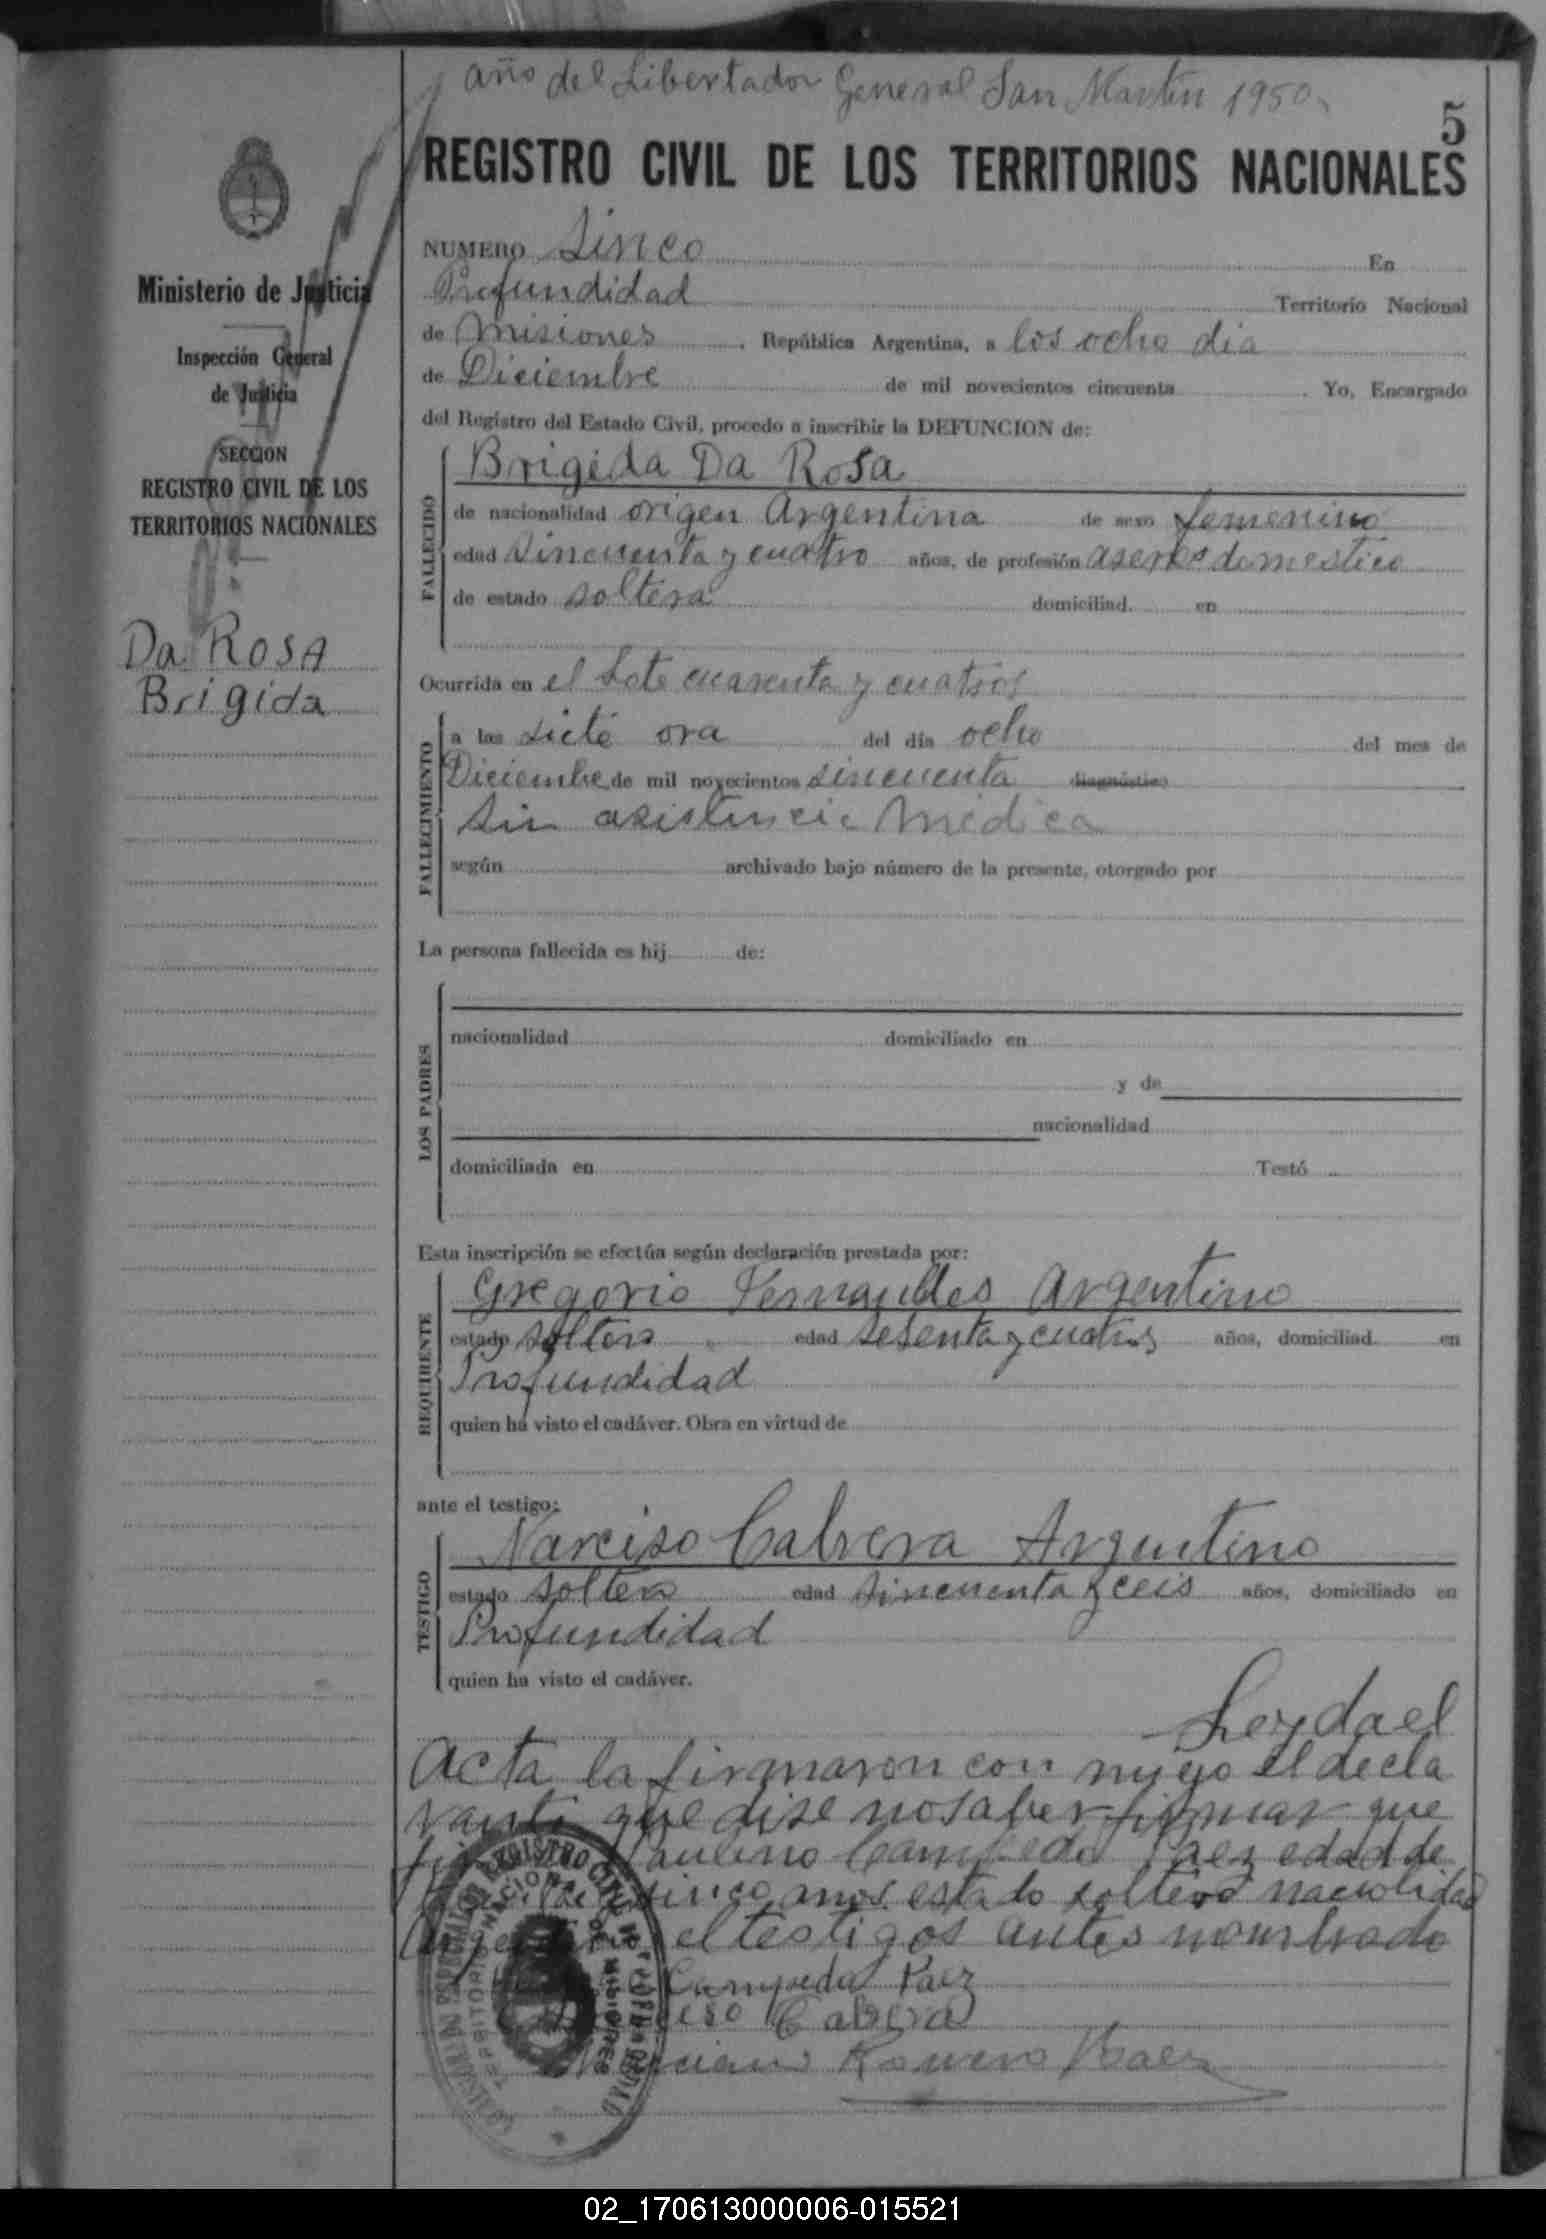 año del Libertador General San Martin 1950
5
REGISTRO CIVIL DE LOS TERRITORIOS NACIONALES
Ministerio de Justicia
Inspección General
de Justicia
SECCION
REGISTRO CIVIL DE LOS
TERRITORIOS NACIONALES
Da ROSA
Brigida
NUMERO Sinco En
Profundidad Territorio Nacional
de Misiones, República Argentina, a los ocho dia
de Diciembre de mil novecientos cincuenta. Yo, Encargado
del Registro del Estado Civil, procedo a inscribir la DEFUNCION de:
FALLECIDO
Brigida Da Rosa
de nacionalidad origen Argentina de sexo femenino
edad Sincuenta y cuatro años, de profesión domestico
de estado soltera domiciliad en
Ocurrida en el Lote cuarenta y cuatros
FALLECIMIENTO
a las siete ora del día ocho del mes de
Diciembre de mil novecientos sincuenta diagnóstico
Sin asistencia Medica
según archivado bajo número de la presente, otorgado por
La persona fallecida es hij de:
LOS PADRES
nacionalidad domiciliado en
y de
nacionalidad
domiciliada en Testó
Esta inscripción se efectúa según declaración prestada por:
REQUIRENTE
Gregorio Fernandes Argentino
estado soltero edad sesenta y cuatros años, domiciliad en
Profundidad
quien ha visto el cadáver. Obra en virtud de
ante el testigo:
TESTIGO
Narciso Cabrera Argentino
estado soltero edad sincuenta y ceis años, domiciliado en
Profundidad
quien ha visto el cadáver.
Leyda el
Acta la firmaron con migo el decla
rante que dise no saber firmar que
Paulino Campeda Paez edad de
sinco anos estado soltero naciolidad
el testigos antes nombrado
Campeda Paez
Cabrera
Romero Paez
REGISTRO CIVIL
02_170613000006-015521